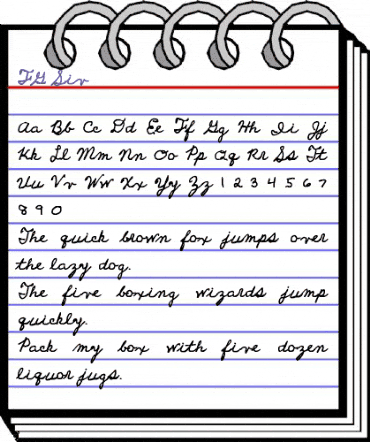 FG Siv
Aa Bb Cc Dd Ee Ff Gg Hh Ii Jj
Kk Ll Mm Nn Oo Pp Qq Rr Ss Tt
Uu Vv Ww Xx Yy Zz 1 2 3 4 5 6 7
8 9 0
The quick brown fox jumps over
the lazy dog.
The five boxing wizards jump
quickly.
Pack my box with five dozen
liquor jugs.